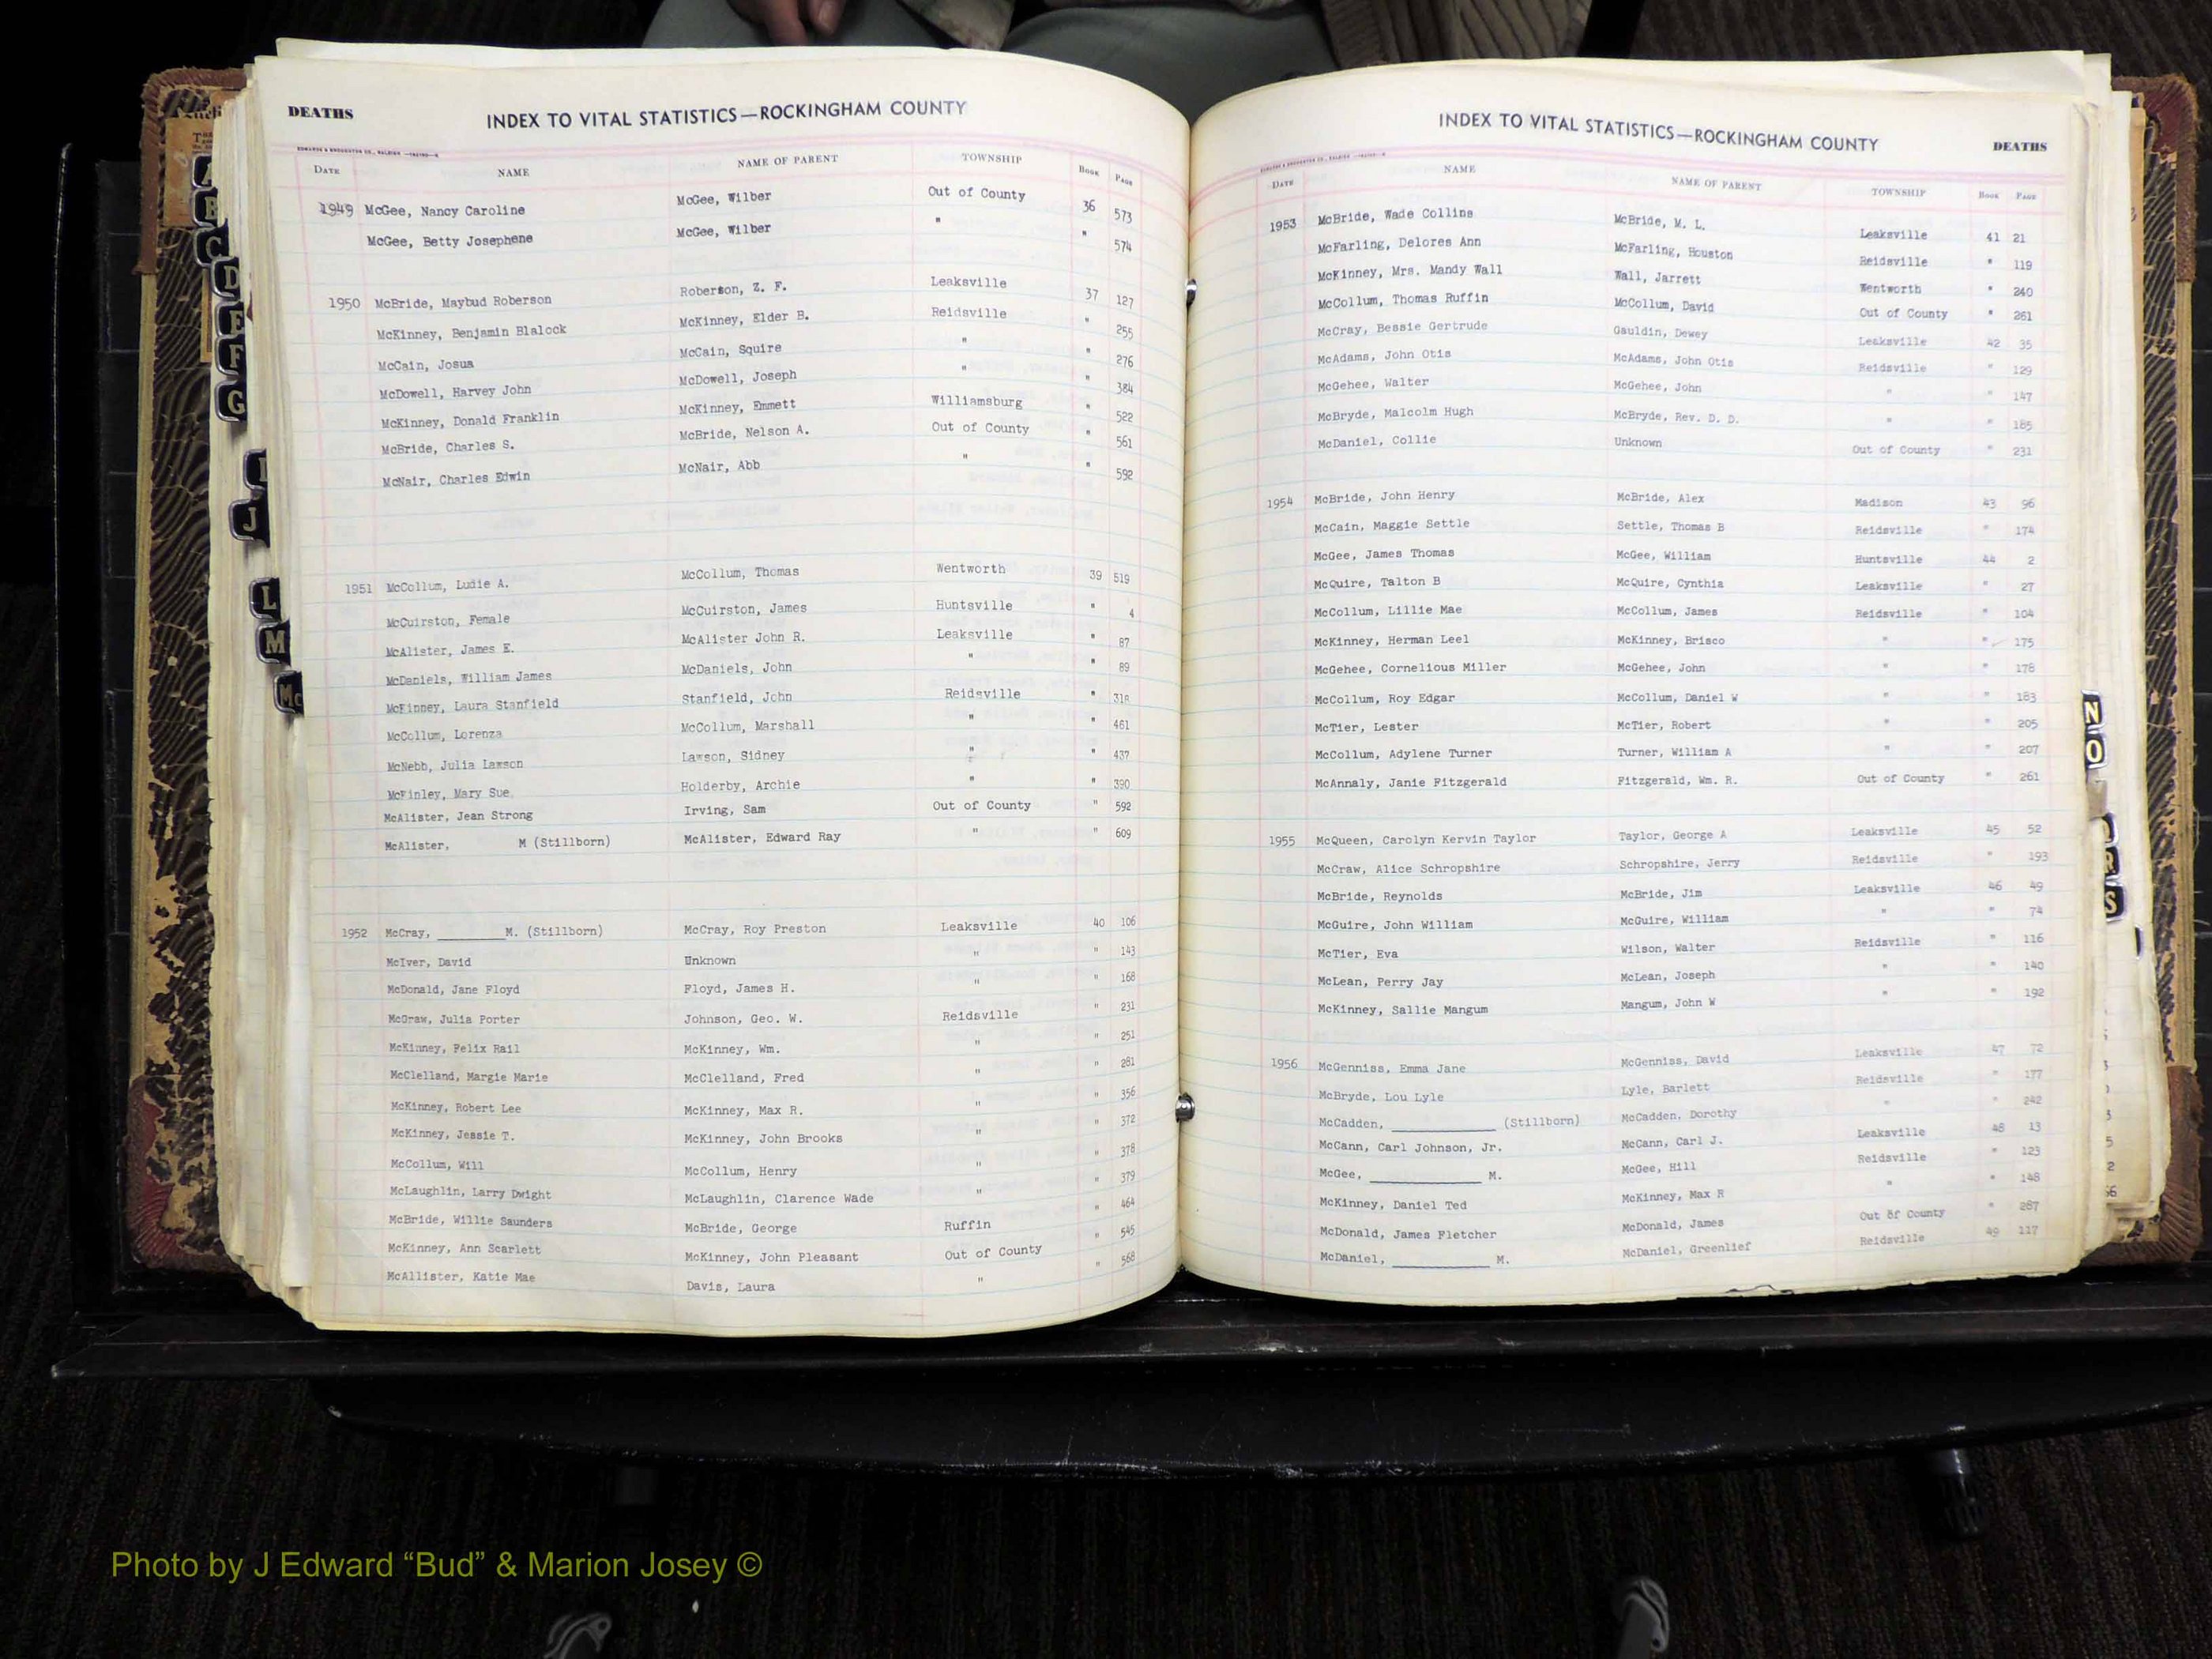 DEATHS
INDEX TO VITAL STATISTICS—ROCKINGHAM COUNTY
DATE NAME NAME OF PARENT TOWNSHIP BOOK PAGE
1949 McGee, Nancy Caroline McGee, Wilber Out of County 36 573
McGee, Betty Josephene McGee, Wilber " " 574
1950 McBride, Maybud Roberson Roberson, Z. F. Leaksville 37 127
McKinney, Benjamin Blalock McKinney, Elder B. Reidsville " 255
McCain, Josua McCain, Squire " " 276
McDowell, Harvey John McDowell, Joseph " " 384
McKinney, Donald Franklin McKinney, Emmett Williamsburg " 522
McBride, Charles S. McBride, Nelson A. Out of County " 561
McNair, Charles Edwin McNair, Abb " " 592
1951 McCollum, Ludie A. McCollum, Thomas Wentworth 39 519
McCuirston, Female McCuirston, James Huntsville " 4
McAlister, James E. McAlister John R. Leaksville " 87
McDaniels, William James McDaniels, John " " 89
McFinney, Laura Stanfield Stanfield, John Reidsville " 318
McCollum, Lorenza McCollum, Marshall " " 461
McNebb, Julia Lawson Lawson, Sidney " " 437
McFinley, Mary Sue Holderby, Archie " " 390
McAlister, Jean Strong Irving, Sam Out of County " 592
McAlister, M (Stillborn) McAlister, Edward Ray " " 609
1952 McCray, ________M. (Stillborn) McCray, Roy Preston Leaksville 40 106
McIver, David Unknown " " 143
McDonald, Jane Floyd Floyd, James H. " " 168
McGraw, Julia Porter Johnson, Geo. W. Reidsville " 231
McKinney, Felix Rail McKinney, Wm. " " 251
McClelland, Margie Marie McClelland, Fred " " 281
McKinney, Robert Lee McKinney, Max R. " " 356
McKinney, Jessie T. McKinney, John Brooks " " 372
McCollum, Will McCollum, Henry " " 378
McLaughlin, Larry Dwight McLaughlin, Clarence Wade " " 379
McBride, Willie Saunders McBride, George Ruffin " 464
McKinney, Ann Scarlett McKinney, John Pleasant Out of County " 545
McAllister, Katie Mae Davis, Laura " " 568
INDEX TO VITAL STATISTICS—ROCKINGHAM COUNTY
DEATHS
DATE NAME NAME OF PARENT TOWNSHIP BOOK PAGE
1953 McBride, Wade Collins McBride, M. L. Leaksville 41 21
McFarling, Delores Ann McFarling, Houston Reidsville " 119
McKinney, Mrs. Mandy Wall Wall, Jarrett Wentworth " 240
McCollum, Thomas Ruffin McCollum, David Out of County " 261
McCray, Bessie Gertrude Gauldin, Dewey Leaksville 42 35
McAdams, John Otis McAdams, John Otis Reidsville " 129
McGehee, Walter McGehee, John " " 147
McBryde, Malcolm Hugh McBryde, Rev. D. D. " " 185
McDaniel, Collie Unknown Out of County " 231
1954 McBride, John Henry McBride, Alex Madison 43 96
McCain, Maggie Settle Settle, Thomas B Reidsville " 174
McGee, James Thomas McGee, William Huntsville 44 2
McQuire, Talton B McQuire, Cynthia Leaksville " 27
McCollum, Lillie Mae McCollum, James Reidsville " 104
McKinney, Herman Leel McKinney, Brisco " " 175
McGehee, Cornelious Miller McGehee, John " " 178
McCollum, Roy Edgar McCollum, Daniel W " " 183
McTier, Lester McTier, Robert " " 205
McCollum, Adylene Turner Turner, William A " " 207
McAnnaly, Janie Fitzgerald Fitzgerald, Wm. R. Out of County " 261
1955 McQueen, Carolyn Kervin Taylor Taylor, George A Leaksville 45 52
McCraw, Alice Schropshire Schropshire, Jerry Reidsville " 193
McBride, Reynolds McBride, Jim Leaksville 46 49
McGuire, John William McGuire, William " " 74
McTier, Eva Wilson, Walter Reidsville " 116
McLean, Perry Jay McLean, Joseph " " 140
McKinney, Sallie Mangum Mangum, John W " " 192
1956 McGenniss, Emma Jane McGenniss, David Leaksville 47 72
McBryde, Lou Lyle Lyle, Barlett Reidsville " 177
McCadden, ____________ (Stillborn) McCadden, Dorothy " " 242
McCann, Carl Johnson, Jr. McCann, Carl J. Leaksville 48 13
McGee, ____________ M. McGee, Hill Reidsville " 123
McKinney, Daniel Ted McKinney, Max R " " 148
McDonald, James Fletcher McDonald, James Out of County " 287
McDaniel, ____________ M. McDaniel, Greenlief Reidsville 49 117
A
B
C
D
E
F
G
I
J
L
M
Mc
N
O
R
S
Photo by J Edward “Bud” & Marion Josey ©